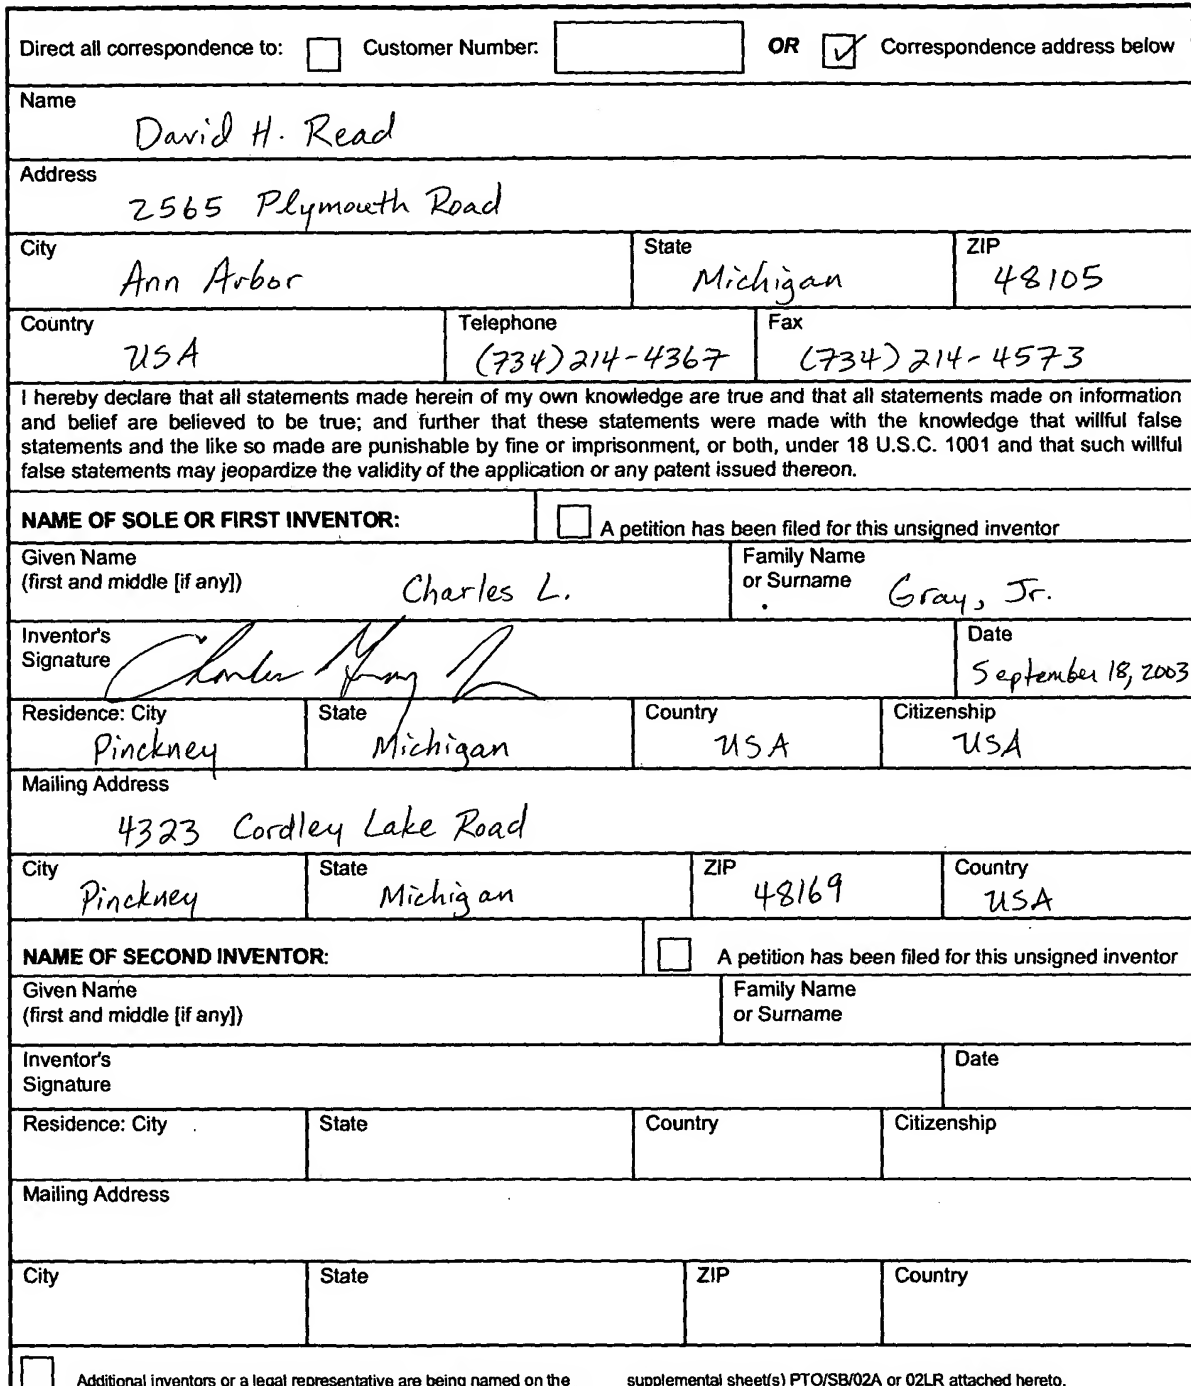 Direct all correspondence to: Customer Number: OR Correspondence address below
Name
David H. Read
Address
2565 Plymouth Road
City State ZIP
Ann Arbor Michigan 48105
Country Telephone Fax
USA (734) 214-4367 (734) 214-4573
I hereby declare that all statements made herein of my own knowledge are true and that all statements made on information
and belief are believed to be true; and further that these statements were made with the knowledge that willful false
statements and the like so made are punishable by fine or imprisonment, or both, under 18 U.S.C. 1001 and that such willful
false statements may jeopardize the validity of the application or any patent issued thereon.
NAME OF SOLE OR FIRST INVENTOR: A petition has been filed for this unsigned inventor
Given Name Family Name
(first and middle [if any]) Charles L. or Surname Gray, Jr.
Inventor's Date
Signature Charles Gray Jr September 18, 2003
Residence: City State Country Citizenship
Pinckney Michigan USA USA
Mailing Address
4323 Cordley Lake Road
City State ZIP Country
Pinckney Michigan 48169 USA
NAME OF SECOND INVENTOR: A petition has been filed for this unsigned inventor
Given Name Family Name
(first and middle [if any]) or Surname
Inventor's Date
Signature
Residence: City State Country Citizenship
Mailing Address
City State ZIP Country
Additional inventors or a legal representative are being named on the supplemental sheet(s) PTO/SB/02A or 02LR attached hereto.